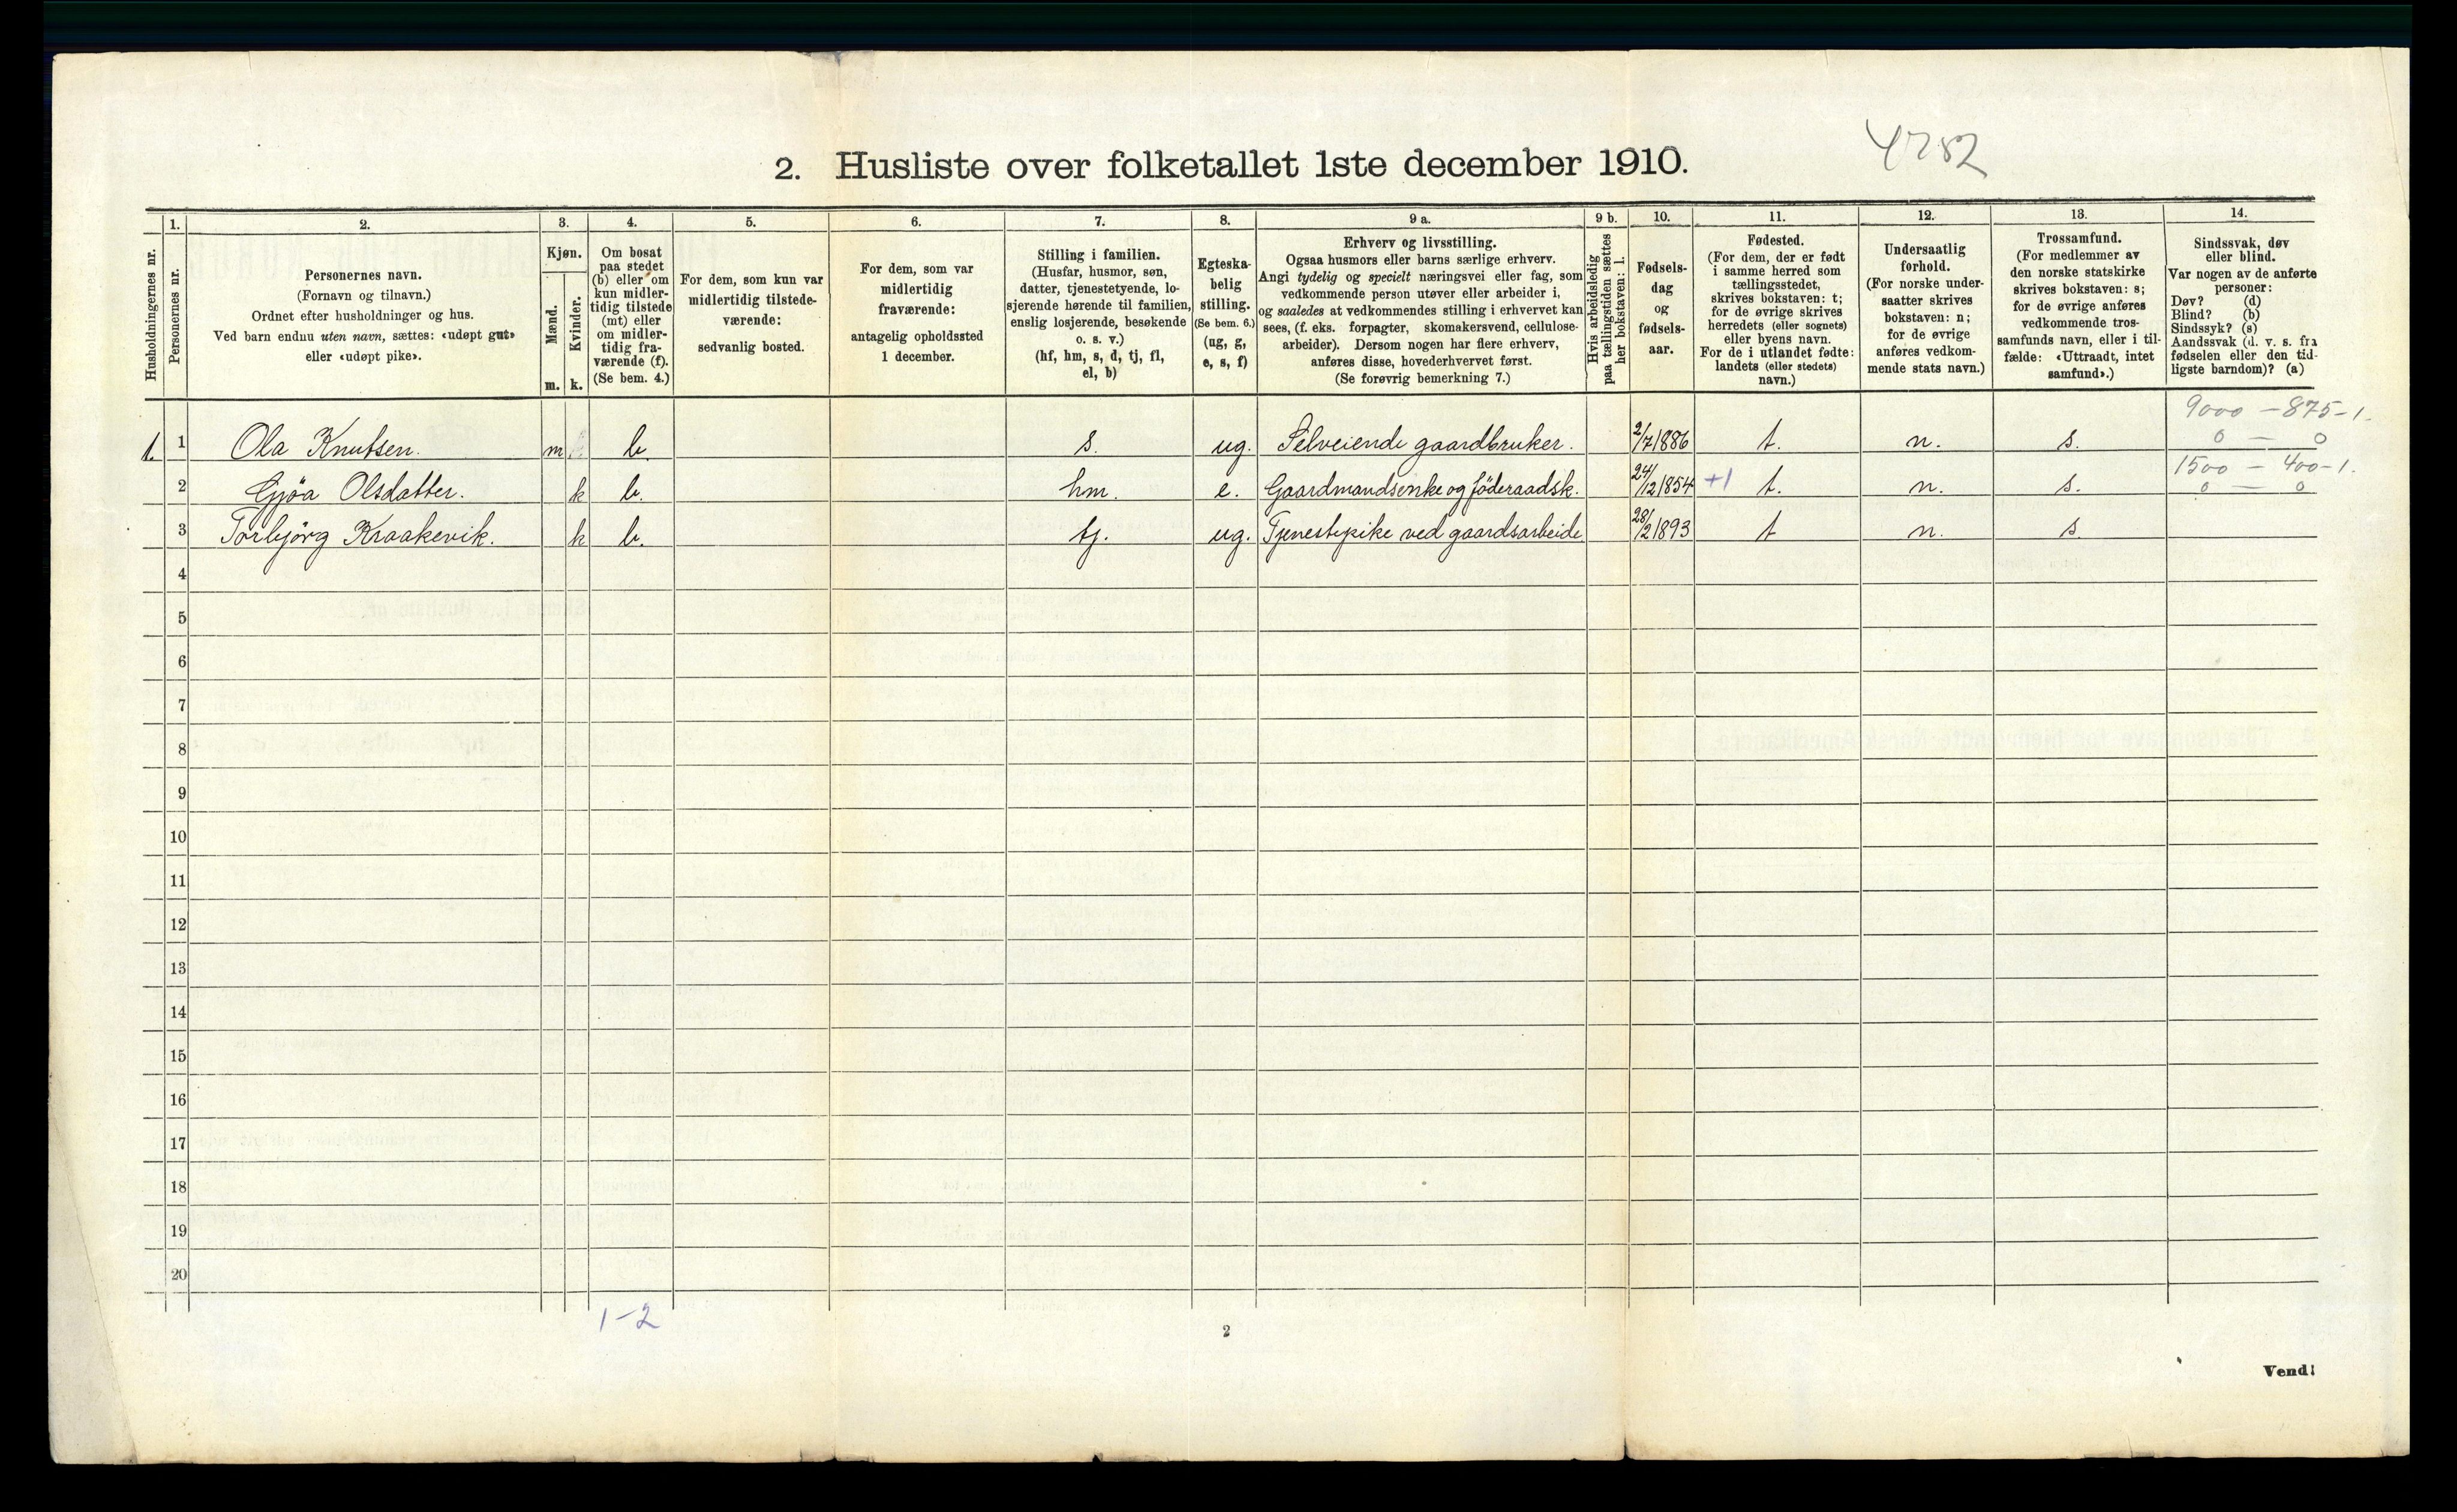 2. Husliste over folketallet 1ste december 1910.
4282
Husholdningernes nr.
1.
Personernes nr.
2.
Personernes navn.
(Fornavn og tilnavn.)
Ordnet efter husholdninger og hus.
Ved barn endnu uten navn, sættes: «udøpt gut»
eller «udøpt pike».
3.
Kjøn.
Mænd.
Kvinder.
m. k.
4.
Om bosat
paa stedet
(b) eller om
kun midler-
tidig tilstede
(mt) eller
om midler-
tidig fra-
værende (f).
(Se bem. 4.)
5.
For dem, som kun var
midlertidig tilstede-
værende:
sedvanlig bosted.
6.
For dem, som var
midlertidig
fraværende:
antagelig opholdssted
1 december.
7.
Stilling i familien.
(Husfar, husmor, søn,
datter, tjenestetyende, lo-
sjerende hørende til familien,
enslig losjerende, besøkende
o. s. v.)
(hf, hm, s, d, tj, fl,
el, b)
8.
Egteska-
belig
stilling.
(Se bem. 6.)
(ug, g,
e, s, f)
9 a.
Erhverv og livsstilling.
Ogsaa husmors eller barns særlige erhverv.
Angi tydelig og specielt næringsvei eller fag, som
vedkommende person utøver eller arbeider i,
og saaledes at vedkommendes stilling i erhvervet kan
sees, (f. eks. forpagter, skomakersvend, cellulose-
arbeider). Dersom nogen har flere erhverv,
anføres disse, hovederhvervet først.
(Se forøvrig bemerkning 7.)
9 b.
Hvis arbeidsledig
paa tællingstiden sættes
her bokstaven: l.
10.
Fødsels-
dag
og
fødsels-
aar.
11.
Fødested.
(For dem, der er født
i samme herred som
tællingsstedet,
skrives bokstaven: t;
for de øvrige skrives
herredets (eller sognets)
eller byens navn.
For de i utlandet fødte:
landets (eller stedets)
navn.)
12.
Undersaatlig
forhold.
(For norske under-
saatter skrives
bokstaven: n;
for de øvrige
anføres vedkom-
mende stats navn.)
13.
Trossamfund.
(For medlemmer av
den norske statskirke
skrives bokstaven: s;
for de øvrige anføres
vedkommende tros-
samfunds navn, eller i til-
fælde: «Uttraadt, intet
samfund».)
14.
Sindssvak, døv
eller blind.
Var nogen av de anførte
personer:
Døv? (d)
Blind? (b)
Sindssyk? (s)
Aandssvak (d. v. s. fra
fødselen eller den tid-
ligste barndom)? (a)
9000 - 875 - 1.
1. 1 Ola Knutsen. m b. s. ug. Selveiende gaardbruker. 2/7 1886 t. n. s. 0 - 0
1500 - 400 - 1.
2 Gjöa Olsdatter. k b. hm. e. Gaardmandsenke og föderaadsk. 24/12 1854 +1 t. n. s. 0 - 0
3 Torbjörg Kraakevik. k b. tj. ug. Tjenestepike ved gaardsarbeide 28/2 1893 t n. s.
4
5
6
7
8
9
10
11
12
13
14
15
16
17
18
19
20
1-2
2
Vend!